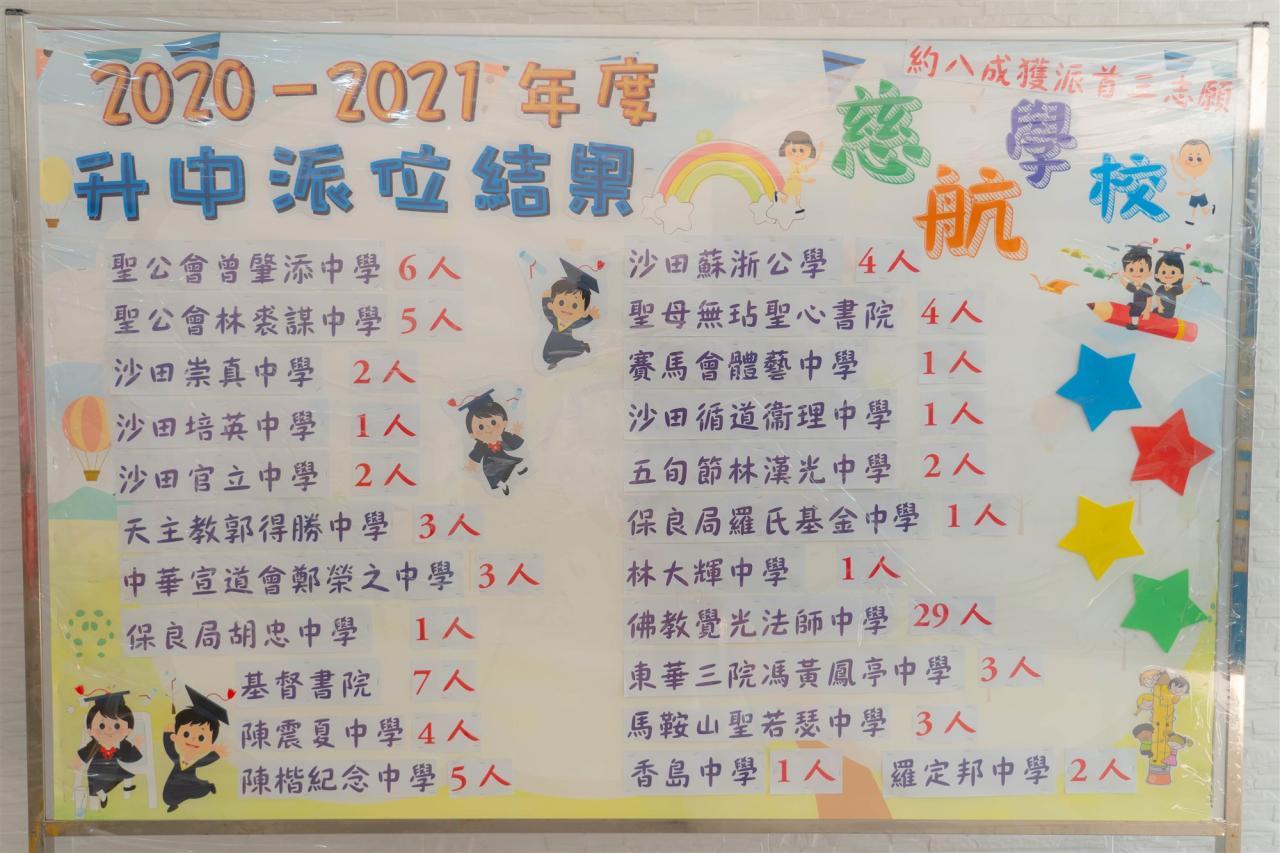 2020-2021年度
升中派位結果
約八成獲派首三志願
慈航學校
聖公會曾肇添中學 6人
聖公會林裘謀中學 5人
沙田崇真中學 2人
沙田培英中學 1人
沙田官立中學 2人
天主教郭得勝中學 3人
中華宣道會鄭榮之中學 3人
保良局胡忠中學 1人
基督書院 7人
陳震夏中學 4人
陳楷紀念中學 5人
沙田蘇浙公學 4人
聖母無玷聖心書院 4人
賽馬會體藝中學 1人
沙田循道衞理中學 1人
五旬節林漢光中學 2人
保良局羅氏基金中學 1人
林大輝中學 1人
佛教覺光法師中學 29人
東華三院馮黃鳳亭中學 3人
馬鞍山聖若瑟中學 3人
香島中學 1人 羅定邦中學 2人